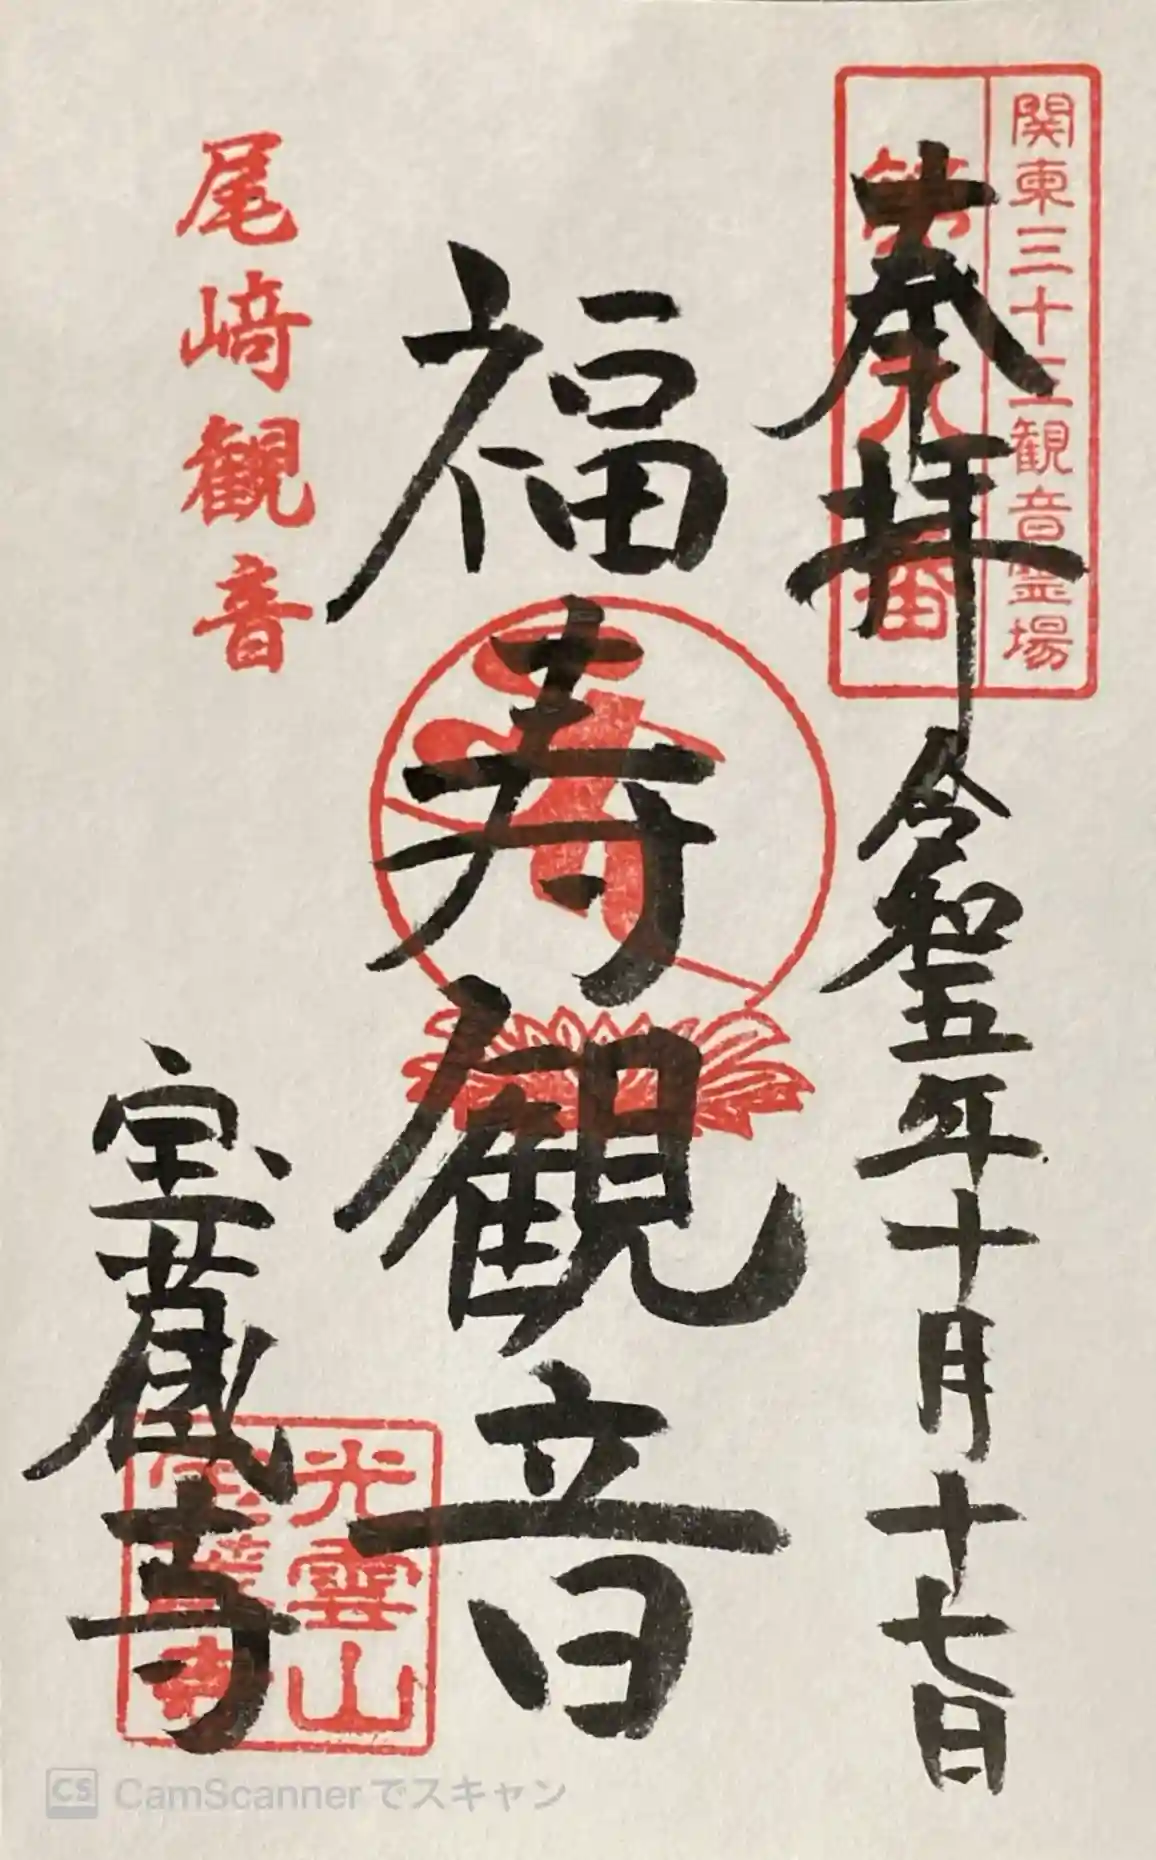 関東三十三観音霊場
奉拝 令和五年十月十七日
福寿観音
尾﨑観音
宝蔵寺
光雲山
CamScannerでスキャン